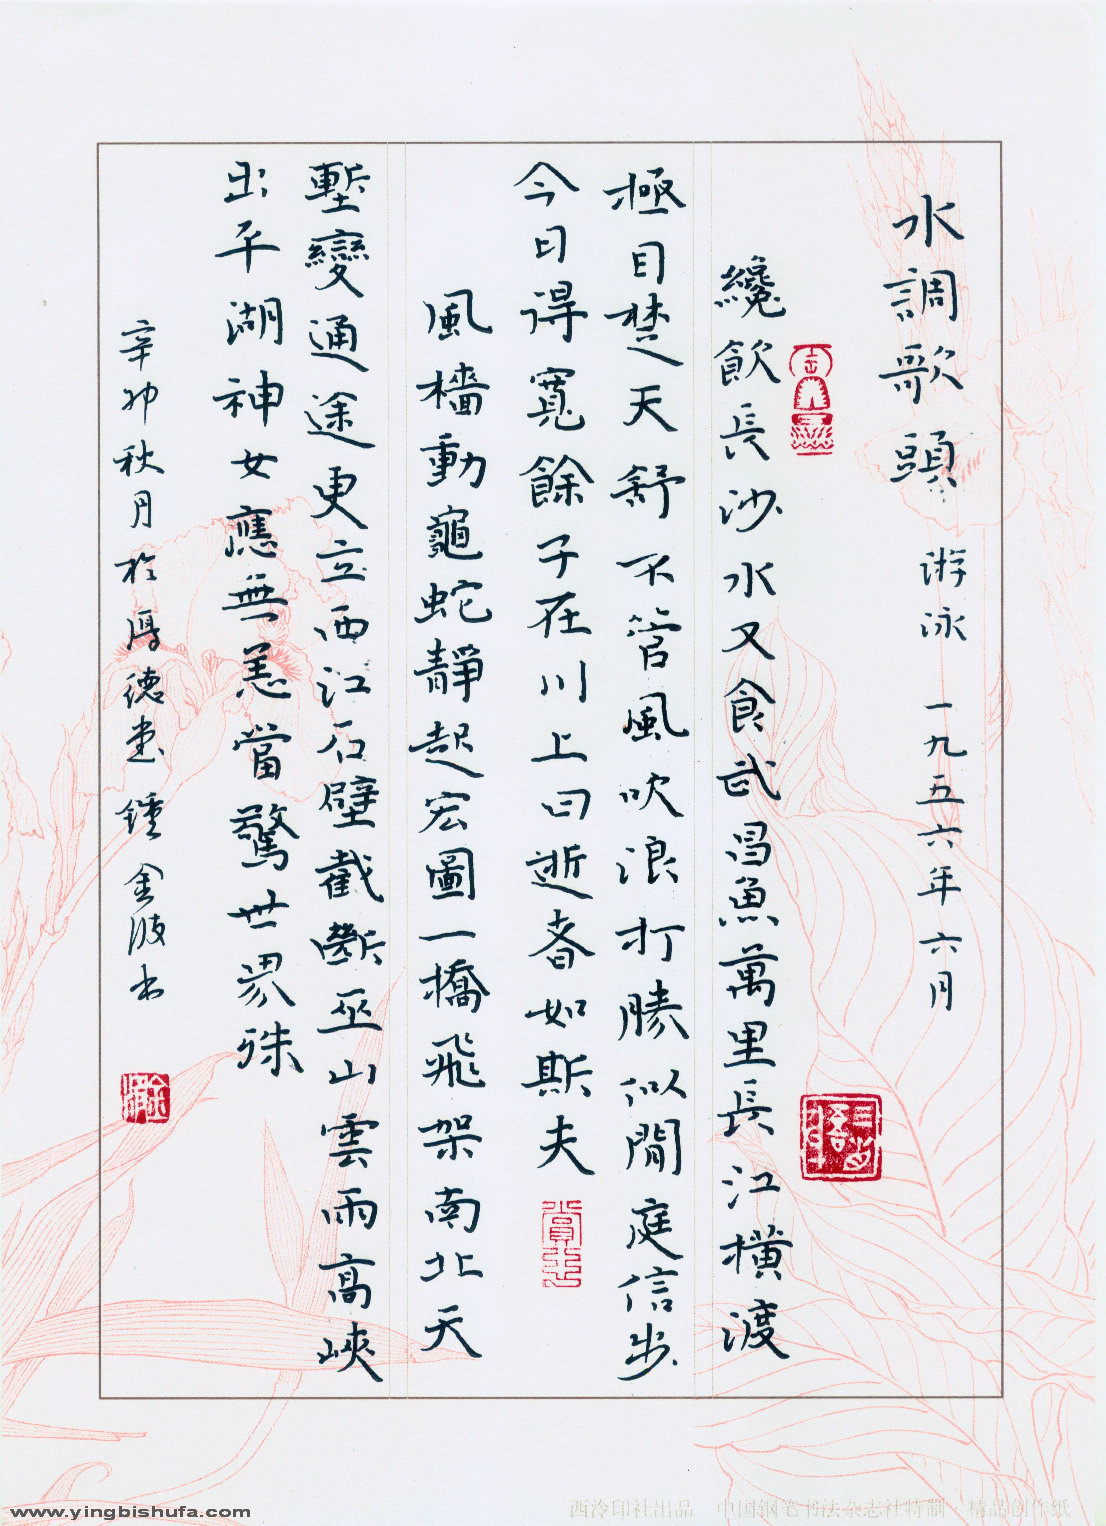 水調歌頭 游泳 一九五六年六月
纔飲長沙水又食武昌魚萬里長江橫渡
極目楚天舒不管風吹浪打勝似閒庭信步
今日得寬餘子在川上曰逝者如斯夫
風檣動龜蛇靜起宏圖一橋飛架南北天
塹變通途更立西江石壁截斷巫山雲雨高峽
出平湖神女應無恙當驚世界殊
辛卯秋月於厚德堂 鍾金波书
www.yingbishufa.com
西泠印社出品 中国钢笔书法杂志社特制 精品创作纸